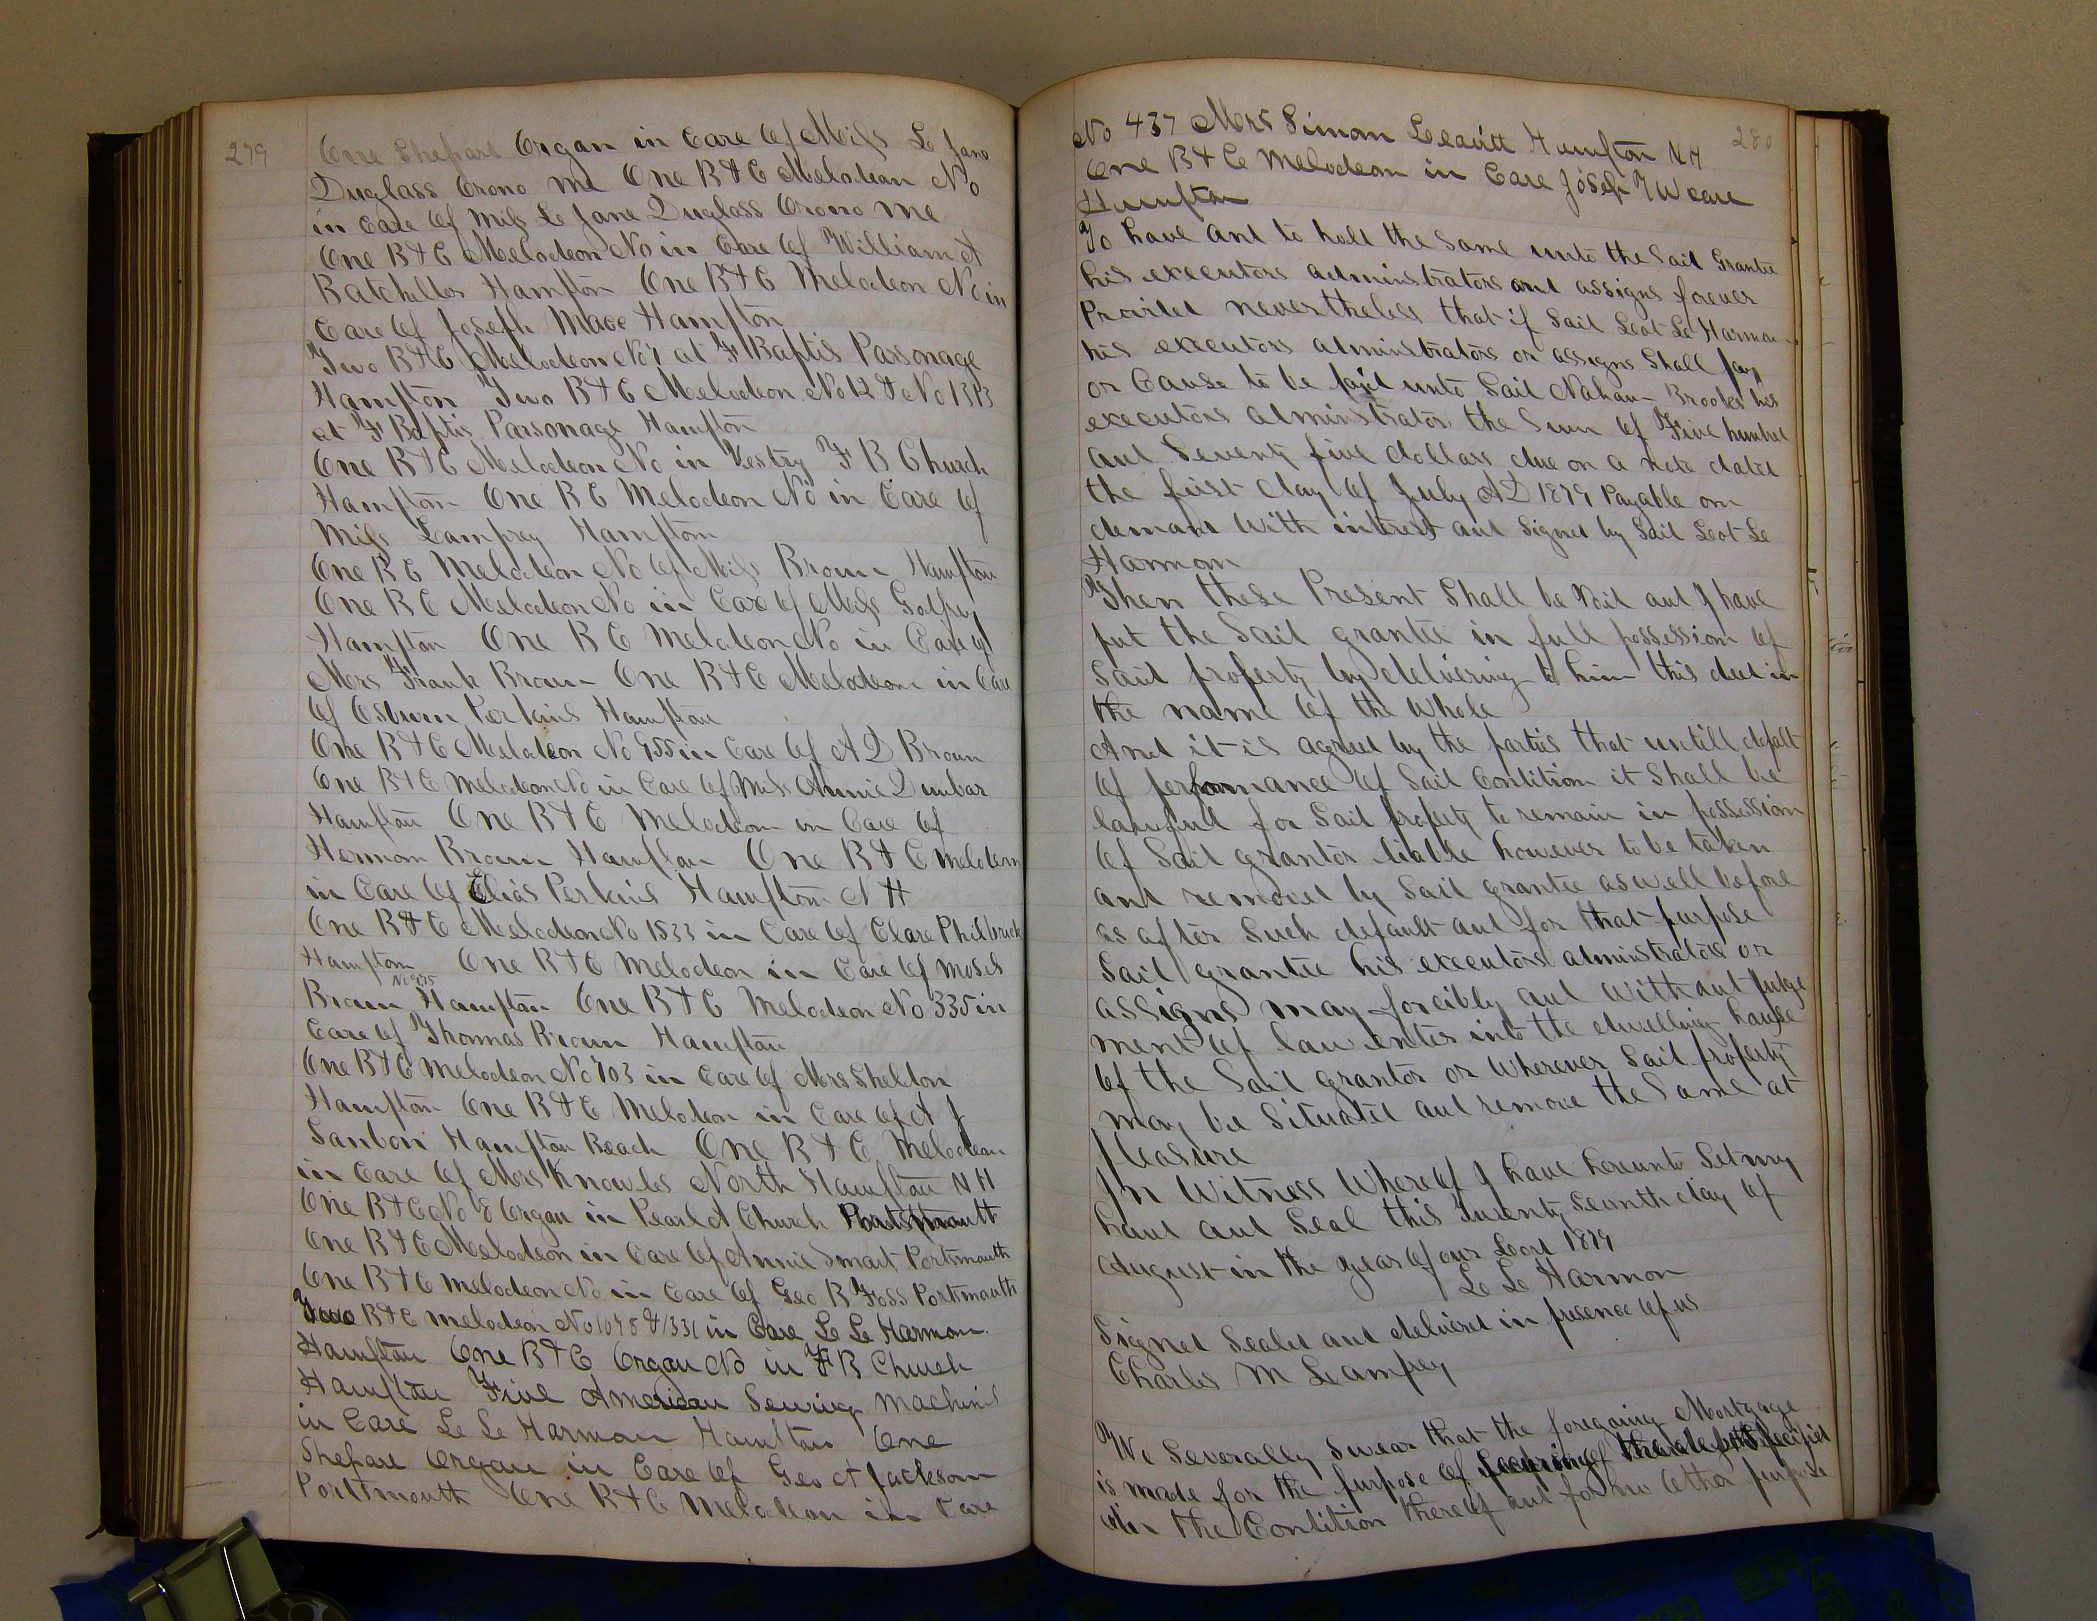 279
One Shepard Organ in Care of Miss L Jane
Duglass Orono Me One B & C Melodean No
in Care of Miss L Jane Duglass Orono Me
One B & C Melodeon No in Care of William A
Batcheller Hampton One B & C Melodeon No in
Care of Joseph Mace Hampton
Two B & C Melodeon No 1 at F Baptis Parsonage
Hampton Two B & C Melodeon No 12 & No 1313
at F Baptis Parsonage Hampton
One B & C Melodeon No in Vestry F B Church
Hampton One B C Melodeon No in Care of
Miss Lamprey Hampton
One B C Melodeon No of Miss Brown Hampton
One B C Melodeon No in Care of Miss Godfrey
Hampton One B C Melodeon No in Care of
Mrs Frank Brown One B & C Melodeon in Care
of Osburn Perkins Hampton
One B & C Melodeon No 955 in Care of A D Brown
One B & C Melodeon No in Care of Miss Annie Dunbar
Hampton One B & C Melodeon in Care of
Herman Brown Hampton One B & C Melodeon
in Care of Elias Perkins Hampton N H
One B & C Melodeon No 1533 in Care of Clare Philbrick
Hampton One B & C Melodeon in Care of Moses
Brown Hampton One B & C Melodeon No 335 in
Care of Thomas Brown Hampton
One B & C Melodeon No 703 in Care of Mrs Sheldon
Hampton One B & C Melodeon in Care of A J
Sanbon Hampton Beach One B & C Melodeon
in Care of Mrs Knowles North Hampton N H
One B & C No 8 Organ in Pearl St Church Portsmouth
One B & C Melodeon in Care of Annie Smart Portsmouth
One B & C Melodeon No in Care of Geo B Foss Portsmouth
Two B & C Melodeon No 1048 & 1331 in Care L L Harmon
Hampton One B & C Organ No in F B Church
Hampton Five American Sewing Machins
in Care L L Harmon Hampton One
Shepard Organ in Care of Geo A Jackson
Portsmouth One B & C Melodeon in Care
280
No 437 Mrs Simon Leavitt Hampton N H
One B & C Melodeon in Care Joseph T Weare
Hampton
To have and to hold the same unto the Said Grantee
his executors administrators and assigns forever
Provided nevertheless that if Said Leot L Harmon
his executors administrators or assigns Shall pay
or Cause to be paid unto Said Nahum Brooks his
executors administrators the Sum of Five hundred
and Seventy five dollars due on a note dated
the first day of July A D 1879 Payable on
demand with interest and Signed by Said Leot L
Harmon
Then these Present Shall be Void and I have
put the Said grantee in full possession of
Said property by delivering to him this deed in
the name of the whole
And it is agreed by the parties that untill defalt
of performance of Said Condition it Shall be
lawfull for Said property to remain in possession
of Said grantor liable however to be taken
and removed by Said grantee as well before
as after Such default and for that purpose
Said grantee his executors administrators or
assigns may forcibly and without Judge
ment of law enter into the dwelling house
of the Said grantor or wherever Said property
may be Situated and remove the Same at
pleasure
In Witness Whereof I have hereunto Set my
hand and Seal this Twenty Seventh day of
August in the year of our Lord 1879
L L Harmon
Signed Sealed and delivered in presence of us
Charles M Lamprey
We Severally Swear that the foregoing Mortgage
is made for the purpose of Securing Specified
in the Condition thereof and for no other purpose